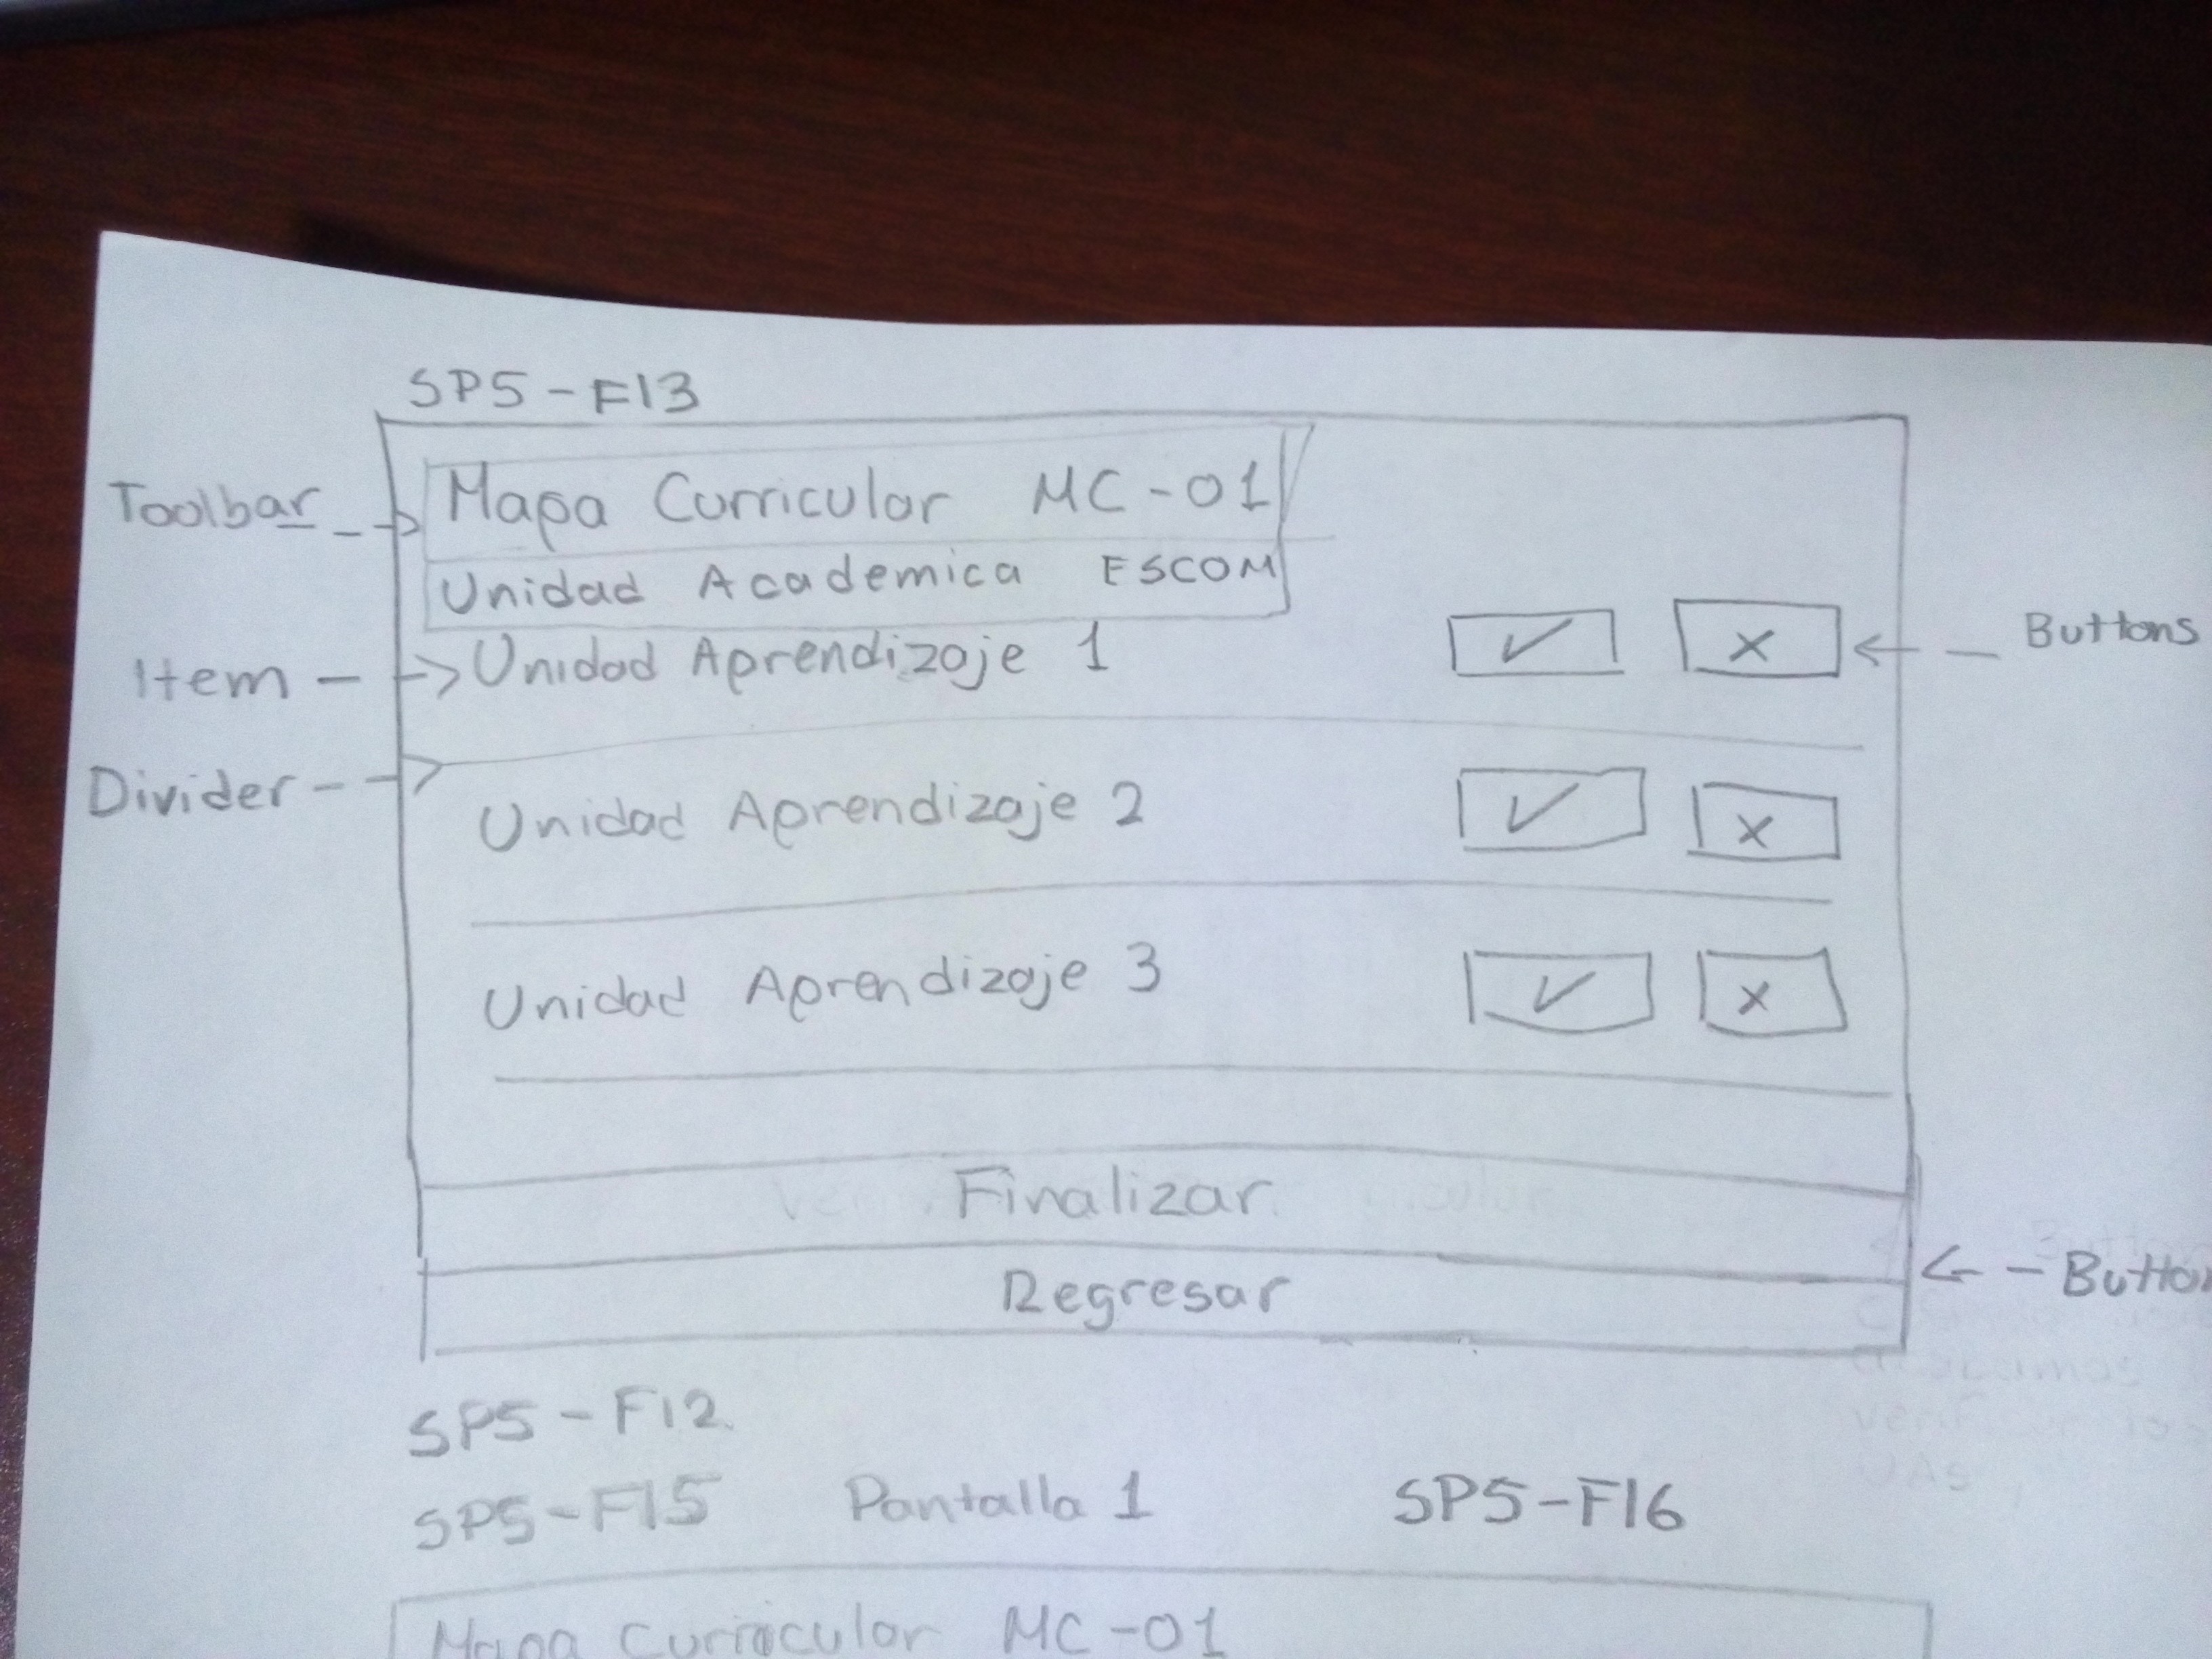 SP5-F13
Toolbar
Mapa Curricular MC-01
Unidad Academica ESCOM
Item
Unidad Aprendizaje 1
✓ x
Buttons
Divider
Unidad Aprendizaje 2
✓ x
Unidad Aprendizaje 3
✓ x
Finalizar
Regresar
SP5-F12
SP5-F15 Pantalla 1 SP5-F16
Mapa Curricular MC-01